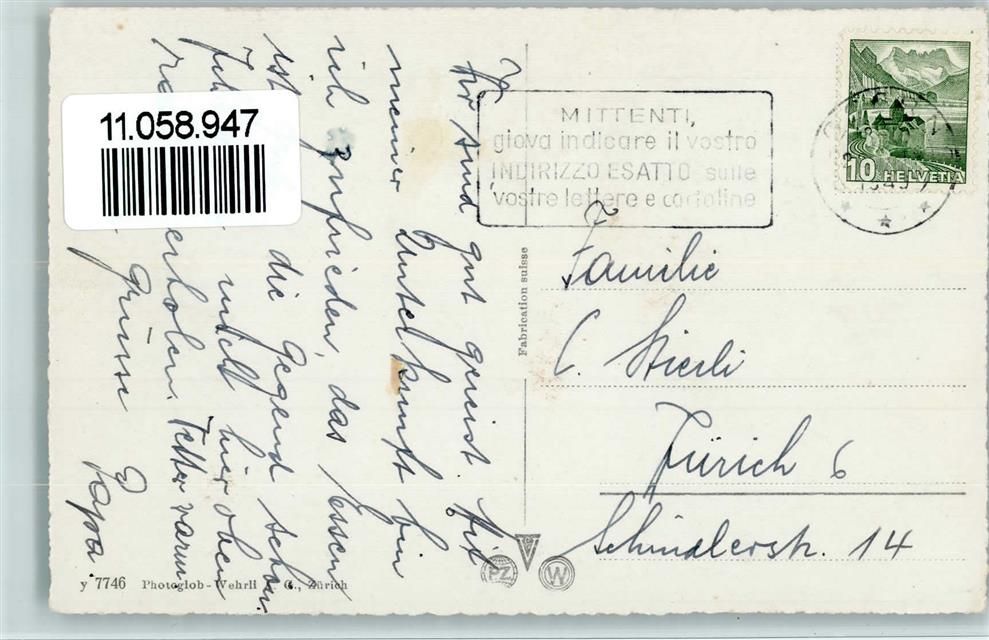 11.058.947
MITTENTI,
giova indicare il vostro
INDIRIZZO ESATTO sulle
vostre lettere e cartoline
10 HELVETIA
Wir sind gut gereist. Mit
meiner Unterkunft bin
ich zufrieden, das Essen
ist die Gegend schön.
hier oben
erholen. Wetter warm
Grüsse
Papa
Familie
C. Stierli
Zürich 6
Schindlerstr. 14
Fabrication suisse
PZ
W
y 7746 Photoglob-Wehrli G., Zürich